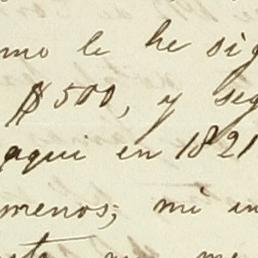 mo le he sig
$500, y seg
aqui en 1821
menos; mi in
me